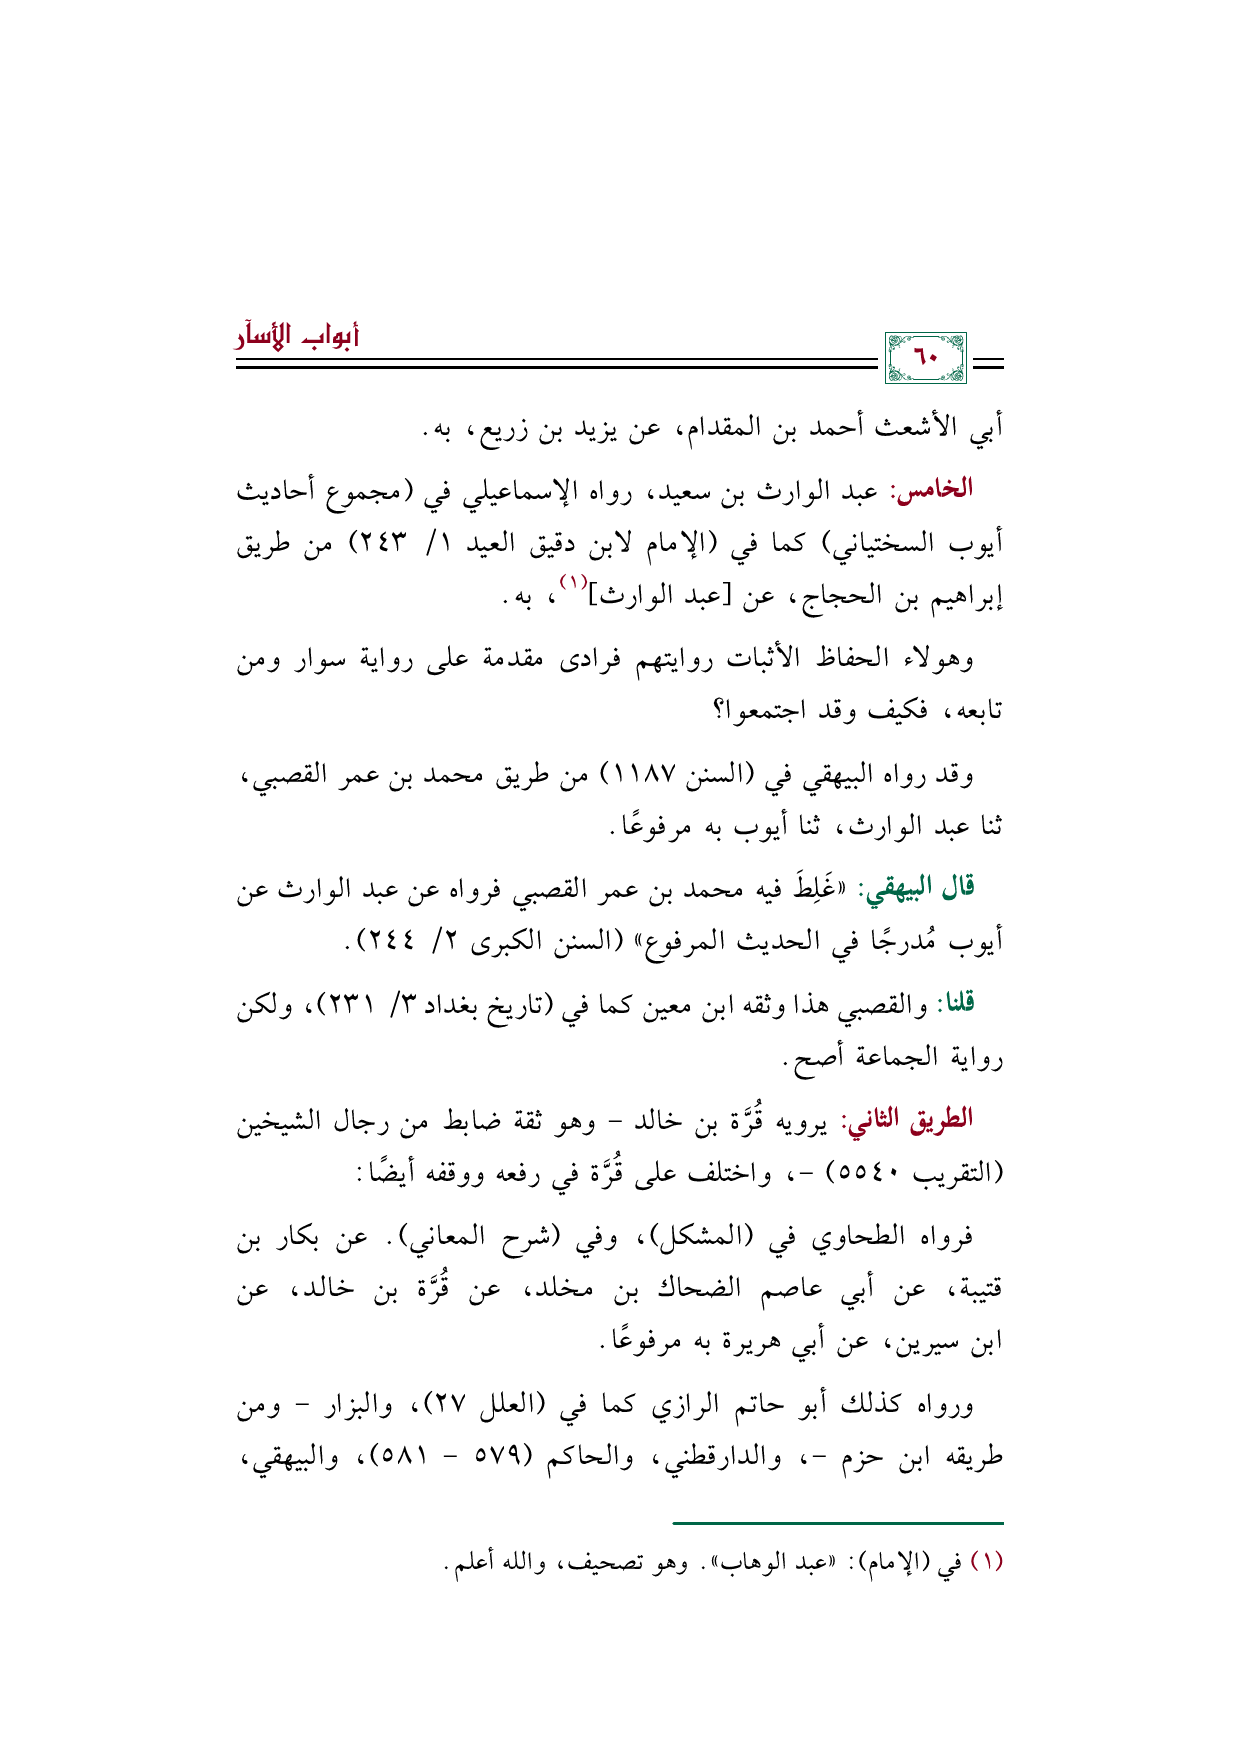 أبواب الأسآر
٦٠
أبي الأشعث أحمد بن المقدام، عن يزيد بن زريع، به.
الخامس: عبد الوارث بن سعيد، رواه الإسماعيلي في (مجموع أحاديث
أيوب السختياني) كما في (الإمام لابن دقيق العيد ١/ ٢٤٣) من طريق
إبراهيم بن الحجاج، عن [عبد الوارث](١)، به.
وهولاء الحفاظ الأثبات روايتهم فرادى مقدمة على رواية سوار ومن
تابعه، فكيف وقد اجتمعوا؟
وقد رواه البيهقي في (السنن ١١٨٧) من طريق محمد بن عمر القصبي،
ثنا عبد الوارث، ثنا أيوب به مرفوعًا.
قال البيهقي: «غَلِطَ فيه محمد بن عمر القصبي فرواه عن عبد الوارث عن
أيوب مُدرجًا في الحديث المرفوع» (السنن الكبرى ٢/ ٢٤٤).
قلنا: والقصبي هذا وثقه ابن معين كما في (تاريخ بغداد ٣/ ٢٣١)، ولكن
رواية الجماعة أصح.
الطريق الثاني: يرويه قُرَّة بن خالد – وهو ثقة ضابط من رجال الشيخين
(التقريب ٥٥٤٠) –، واختلف على قُرَّة في رفعه ووقفه أيضًا:
فرواه الطحاوي في (المشكل)، وفي (شرح المعاني). عن بكار بن
قتيبة، عن أبي عاصم الضحاك بن مخلد، عن قُرَّة بن خالد، عن
ابن سيرين، عن أبي هريرة به مرفوعًا.
ورواه كذلك أبو حاتم الرازي كما في (العلل ٢٧)، والبزار – ومن
طريقه ابن حزم –، والدارقطني، والحاكم (٥٧٩ – ٥٨١)، والبيهقي،
(١) في (الإمام): «عبد الوهاب». وهو تصحيف، والله أعلم.